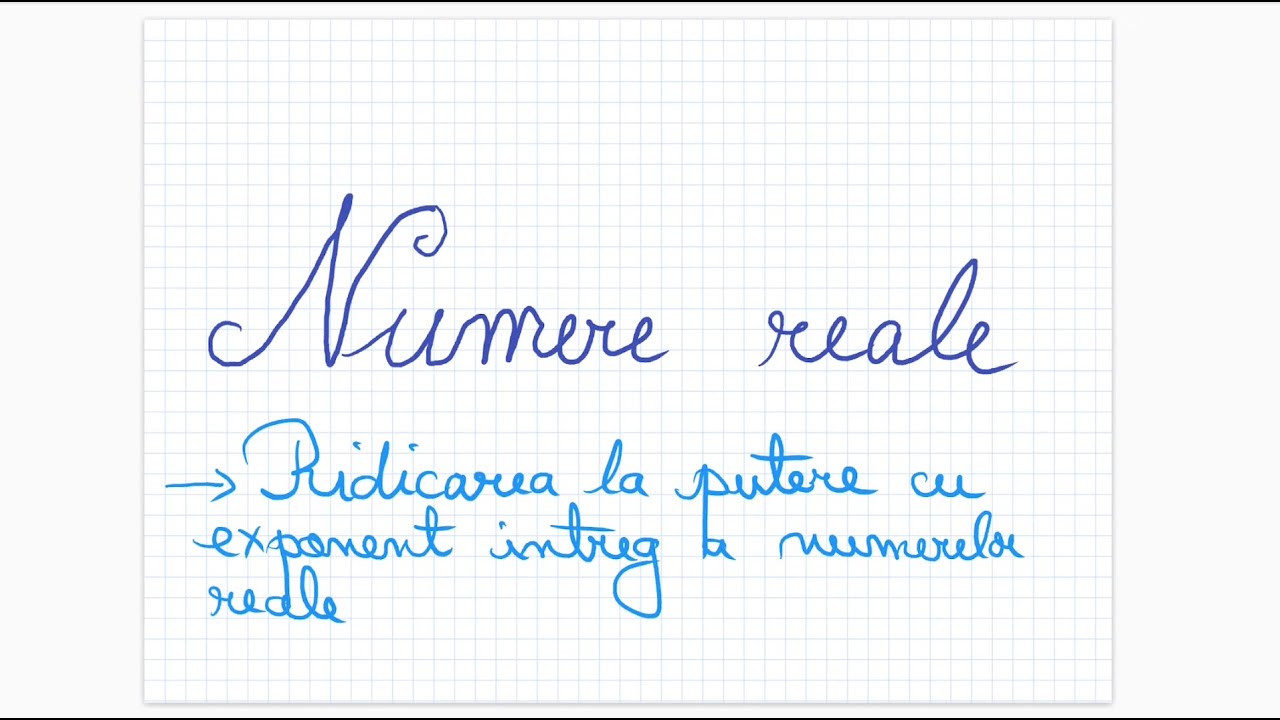 Numere reale
→ Ridicarea la putere cu
exponent intreg a numerelor
reale